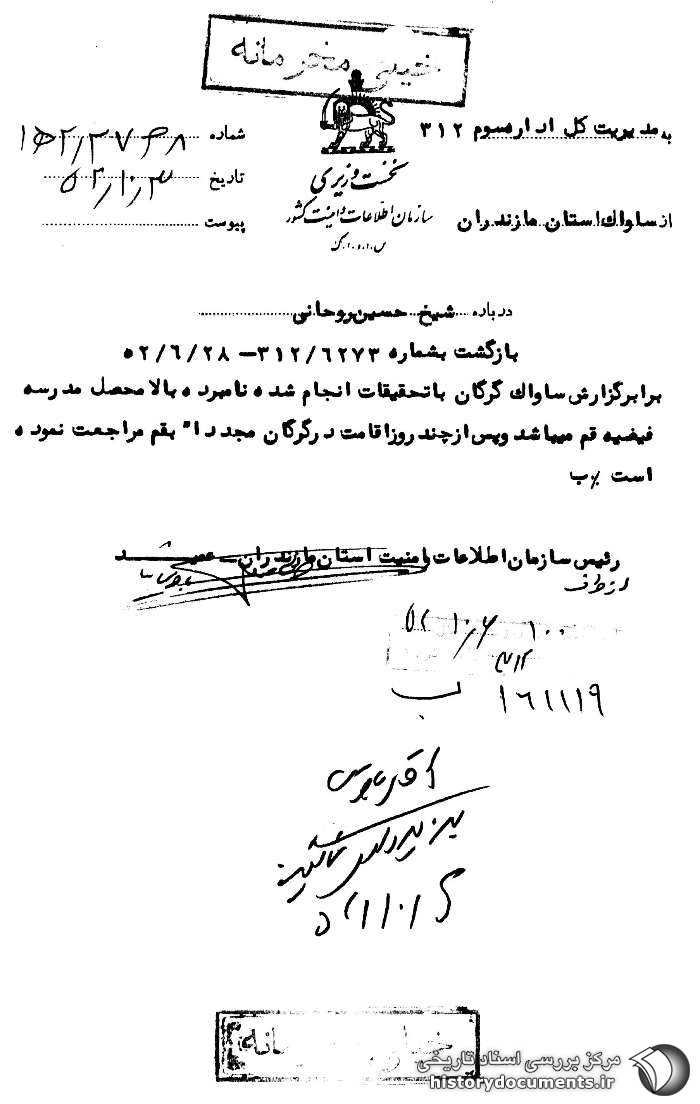 خیلی محرمانه
به مدیریت کل اداره سوم ۳۱۲
شماره
نخست وزیری
تاریخ ۵۲/۱۰/۳
سازمان اطلاعات و امنیت کشور
از ساواک استان مازندران
پیوست
س.ا.و.ا.ک
درباره شیخ حسین روحانی
بازگشت بشماره ۳۱۲/۶۲۷۳ – ۵۲/۶/۲۸
برابر گزارش ساواک گرگان با تحقیقات انجام شده نامبرده بالا محصل مدرسه
فیضیه قم میباشد و پس از چند روز اقامت در گرگان مجدداً بقم مراجعت نموده
است ٪ب
رئیس سازمان اطلاعات و امنیت استان مازندران –
از طرف
۳۱۲
۱۶۱۱۱۹ ب
مرکز بررسی اسناد تاریخی
historydocuments.ir